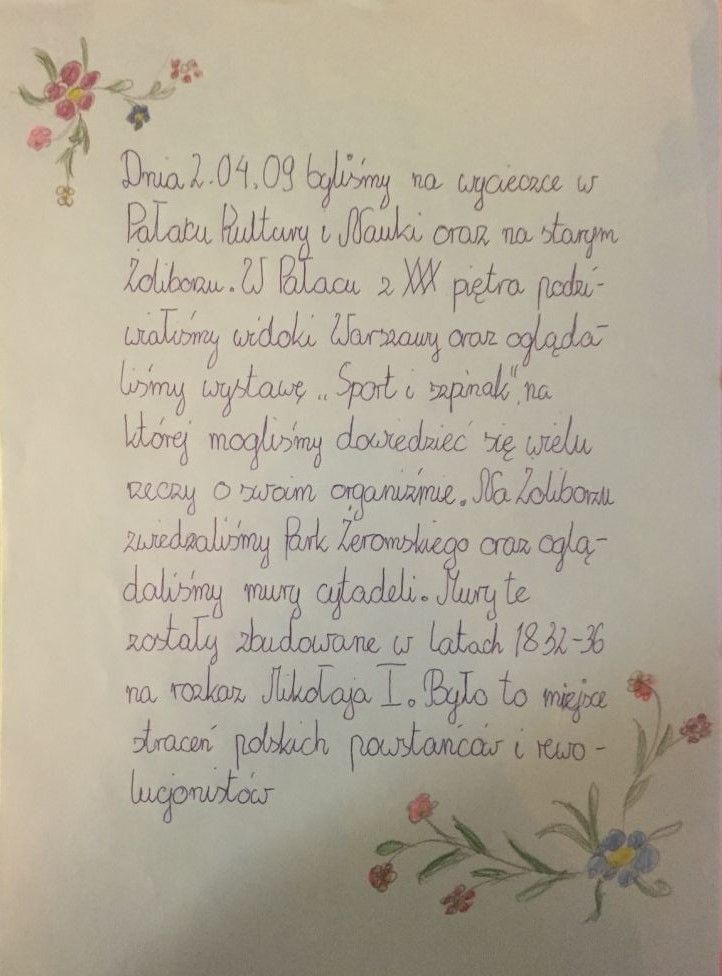 Dnia 2.04.09 byliśmy na wycieczce w
Pałacu Kultury i Nauki oraz na starym
Żoliborzu. W Pałacu z XXX piętra podzi-
wialiśmy widoki Warszawy oraz ogląda-
liśmy wystawę „Sport i szpinak", na
której mogliśmy dowiedzieć się wielu
rzeczy o swoim organiźmie. Na Żoliborzu
zwiedzaliśmy Park Żeromskiego oraz oglą-
daliśmy mury cytadeli. Mury te
zostały zbudowane w latach 1832-36
na rozkaz Mikołaja I. Było to miejsce
straceń polskich powstańców i rewo-
lucjonistów